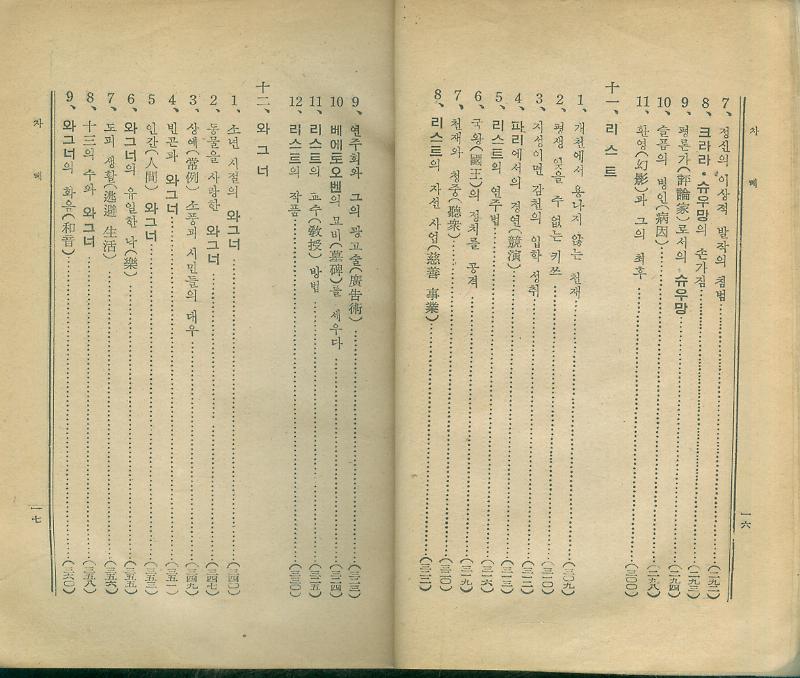 차 례
7、정신의 이상적 발작의 침범……(二九二)
8、크라라・슈우망의 손가짐……(二九三)
9、평론가(評論家)로서의 슈우망……(二九四)
10、슬픔의 병인(病因)……(二九八)
11、환영(幻影)과 그의 최후……(三〇〇)
十一、리 스 트
1、개천에서 용나지 않는 천재……(三〇九)
2、평생 잊을 수 없는 키쓰……(三一〇)
3、지성이면 감천의 입학 성취……(三一二)
4、파리에서의 경연(競演)……(三一三)
5、리스트의 연주법……(三一六)
6、국왕(國王)의 정치를 공격……(三一九)
7、천재와 청중(聽衆)……(三二〇)
8、리스트의 자선 사업(慈善 事業)……(三二二)
一六
9、연주회와 그의 광고술(廣告術)……(三二三)
10 베에토오벤의 묘비(墓碑)를 세우다……(三二四)
11、리스트의 교수(敎授) 방법……(三二五)
12、리스트의 작품……(三三〇)
十二、와 그 너
1、소년 시절의 와그너……(三四〇)
2、동물을 사랑한 와그너……(三四七)
3、상예(常例) 소풍과 시민들의 대우……(三四九)
4、빈곤과 와그너……(三五一)
5 인간(人間) 와그너……(三五三)
6、와그너의 유일한 낙(樂)……(三五五)
7、도피 생활(逃避 生活)……(三五六)
8、十三의 수와 와그너……(三五八)
9、와그너의 화음(和音)……(三六〇)
차 례
一七